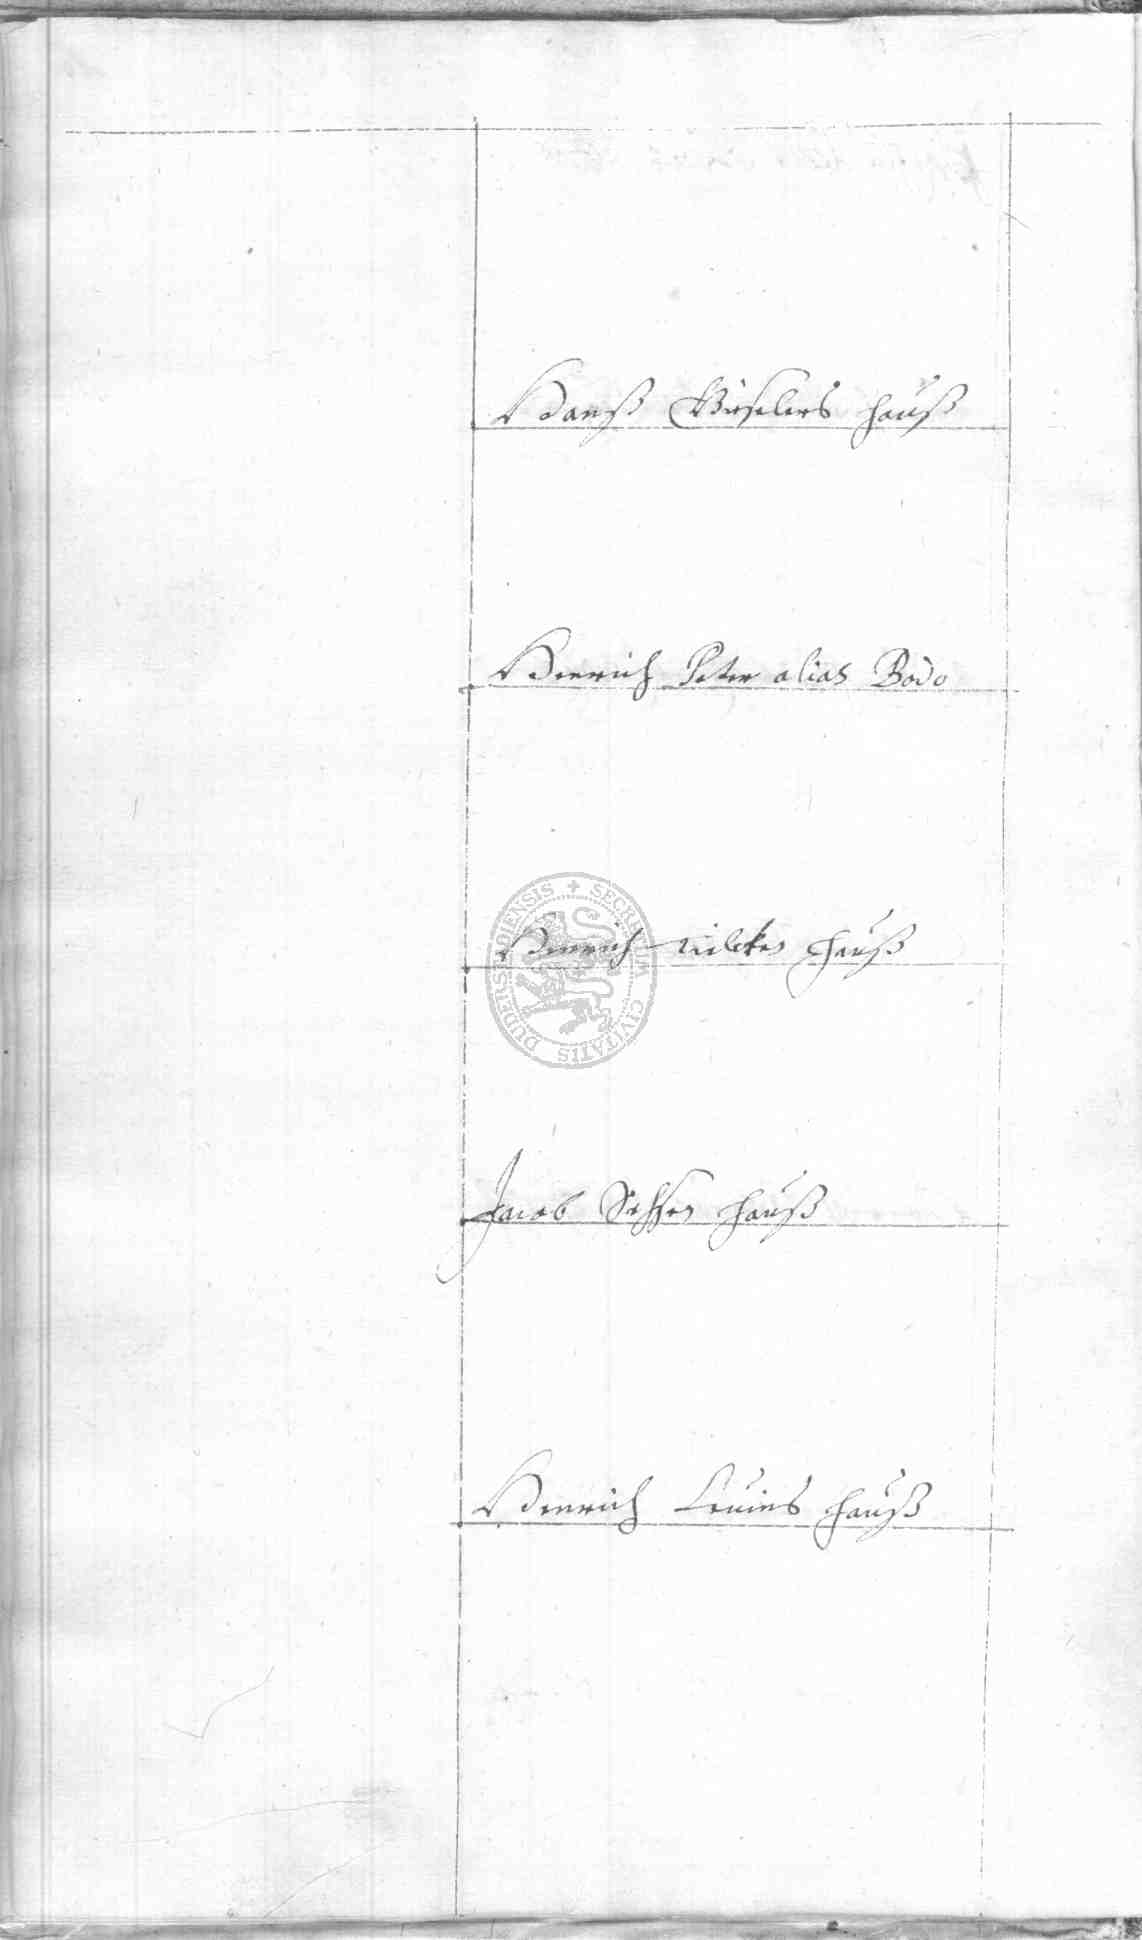 Hanß Wüstelers hauß
Henrich Peter alias Bodo
Henrich hauß
Jacob hauß
Henrich hauß
SECRETUM CIVITATIS DUDERSTADIENSIS